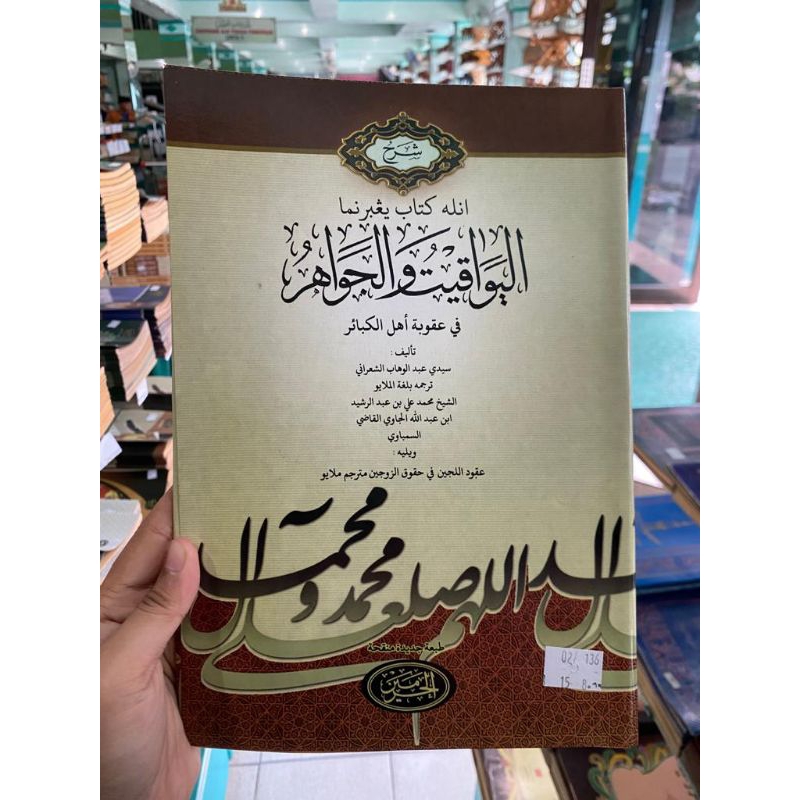 شرح
انله كتاب يڠبرنما
اليواقيت والجواهر
في عقوبة أهل الكبائر
تأليف :
سيدي عبد الوهاب الشعراني
ترجمه بلغة الملايو
الشيخ محمد علي بن عبد الرشيد
ابن عبد الله الجاوي القاضي
السمباوي
ويليه :
عقود اللجين في حقوق الزوجين مترجم ملايو
اللهم صل على محمد وعلى آل محمد
طبعة جديدة منقحة
الحرمين
15